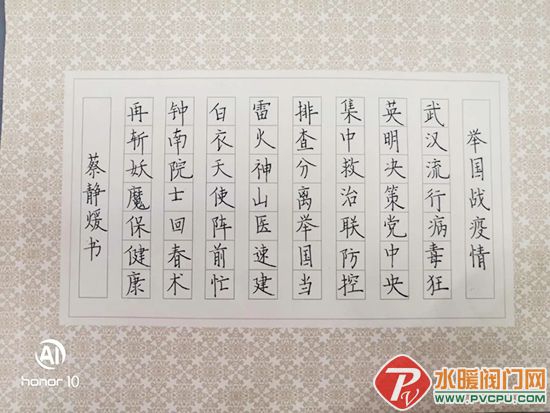 举国战疫情
武汉流行病毒狂
英明决策党中央
集中救治联防控
排查分离举国当
雷火神山医速建
白衣天使阵前忙
钟南院士回春术
再斩妖魔保健康
蔡静煖书
AI
honor 10
水暖阀门网
WWW.PVCPU.COM
PV